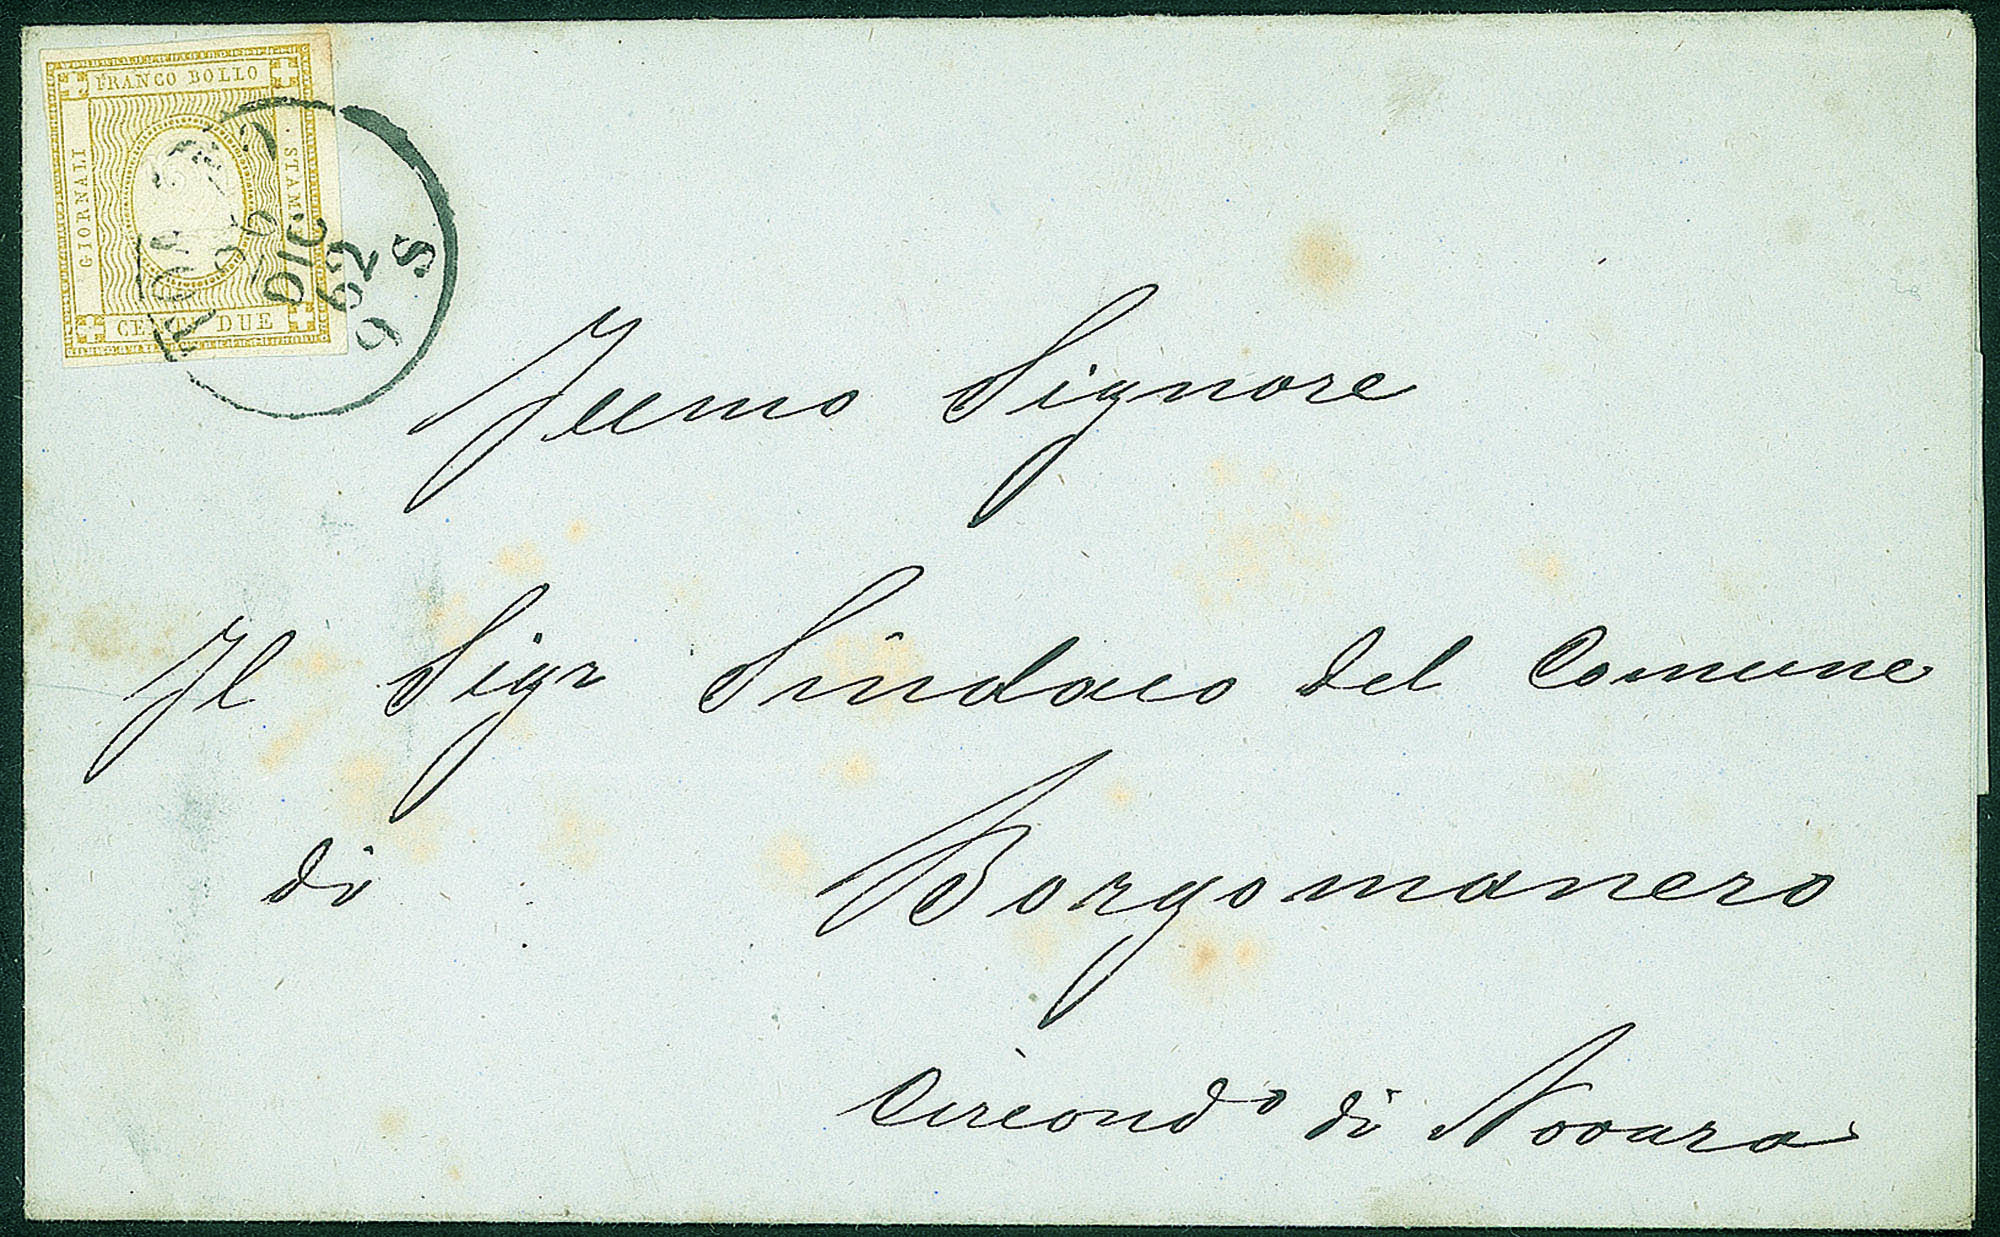 FRANCO BOLLO
GIORNALI
STAM
CE DUE
26
DIC
62
9 S
Illmo Signore
Il Sigr Sindaco del Comune
di Borgomanero
Circondo di Novara